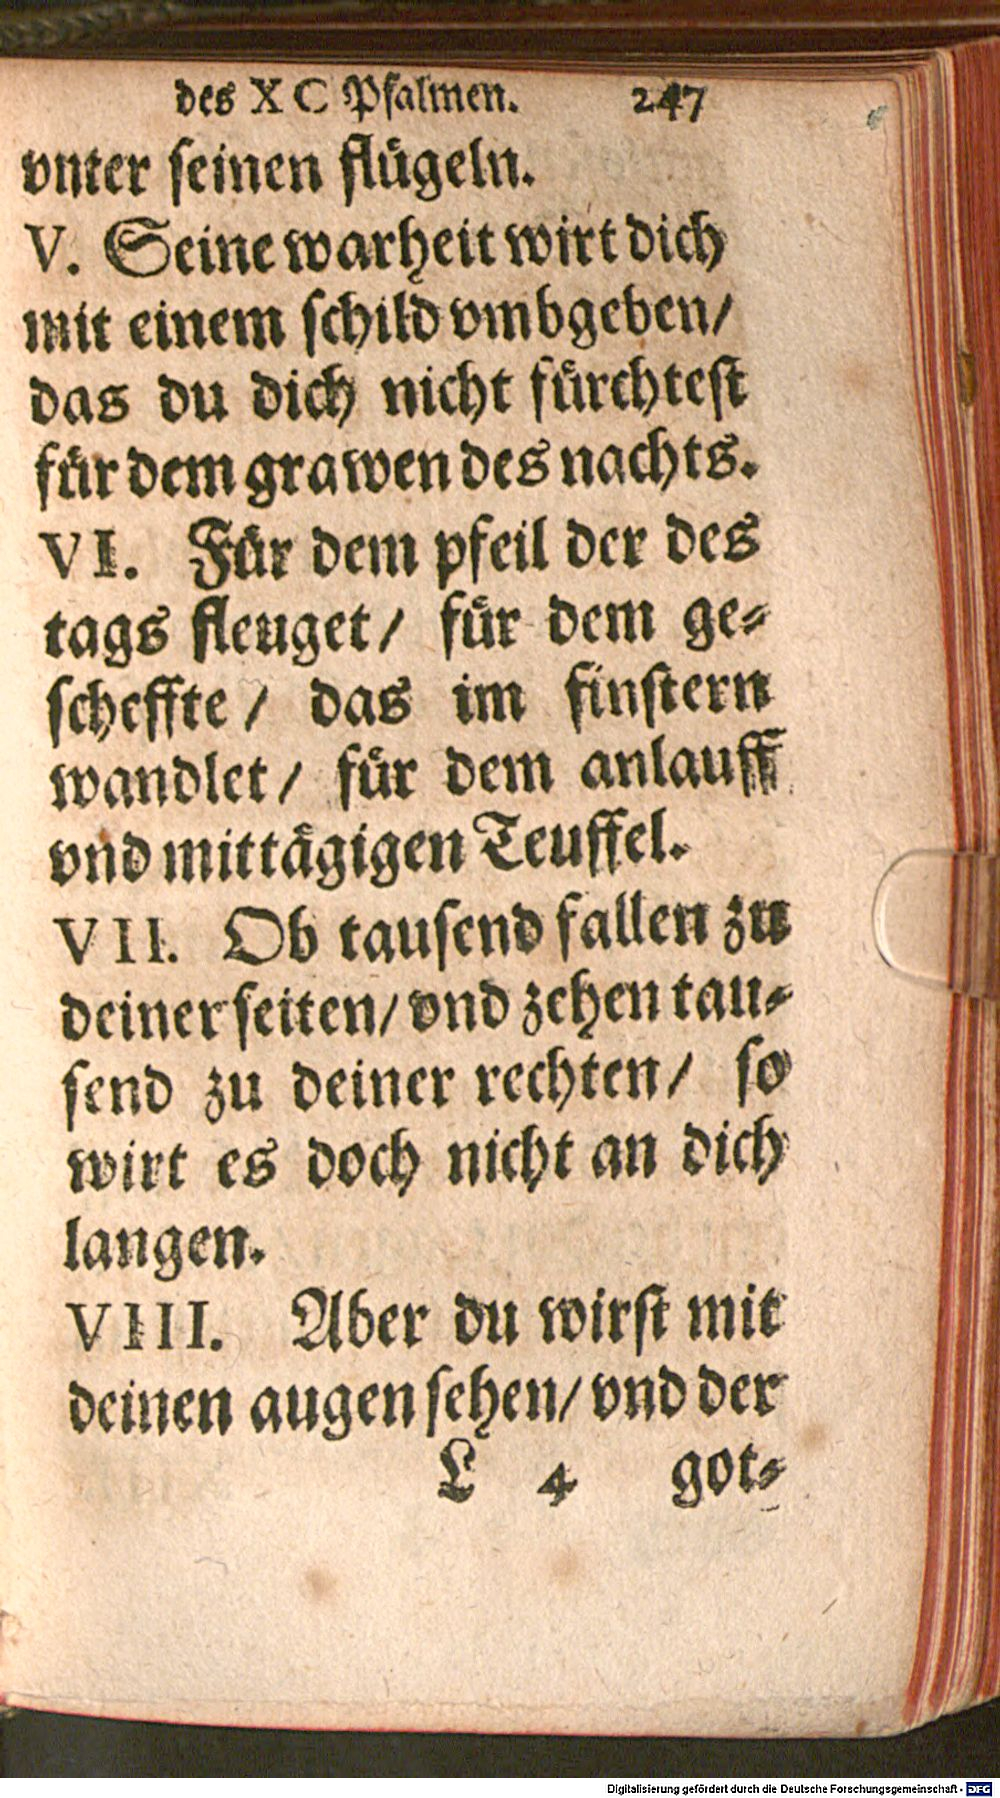 des XC Psalmen. 247
vnter seinen flügeln.
V. Seine warheit wirt dich
mit einem schild vmbgeben/
das du dich nicht fürchtest
für dem grawen des nachts.
VI. Für dem pfeil der des
tags fleuget/ für dem ge-
scheffte/ das im finstern
wandlet/ für dem anlauff
vnd mittägigen Teuffel.
VII. Ob tausend fallen zu
deiner seiten/ vnd zehen tau-
send zu deiner rechten/ so
wirt es doch nicht an dich
langen.
VIII. Aber du wirst mit
deinen augen sehen/ vnd der
L 4 got-
Digitalisierung gefördert durch die Deutsche Forschungsgemeinschaft - DFG